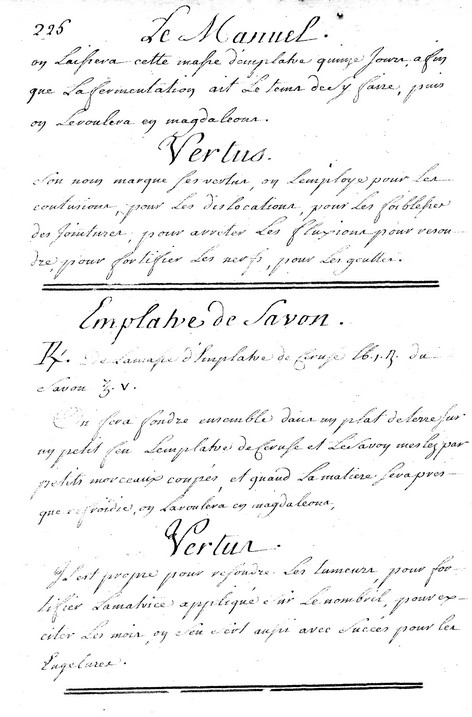 225
Le Manuel.
on Laissera cette masse d'emplatre quinze Jours, afin
que La fermentation ait Le tems de sy faire, puis
on Leroulera en magdaleons.
Vertus.
Son nom marque ses vertus, on L'employe pour Les
contusions, pour Les dislocations, pour les foiblesses
des Jointures, pour arreter Les fluxions pour resou-
dre, pour fortifier Les nerfs, pour Les gouttes.
Emplatre de Savon.
R/. De Lamasse d'Emplatre de Ceruse lb.1.ß. du
Savon ℥.v.
On fera fondre ensemble dans un plat deterre sur
un petit feu L'emplatre de Ceruse et Le Savon meslez par
petits morceaux coupés, et quand La matiere sera pres-
que refroidie, on Laroulera en magdaleons,
Vertus.
Il est propre pour resoudre Les tumeurs, pour for-
tifier Lamatrice appliqué sur Le nombril, pour ex-
citer Les mois, on s'en sert aussi avec succés pour les
Engelures.